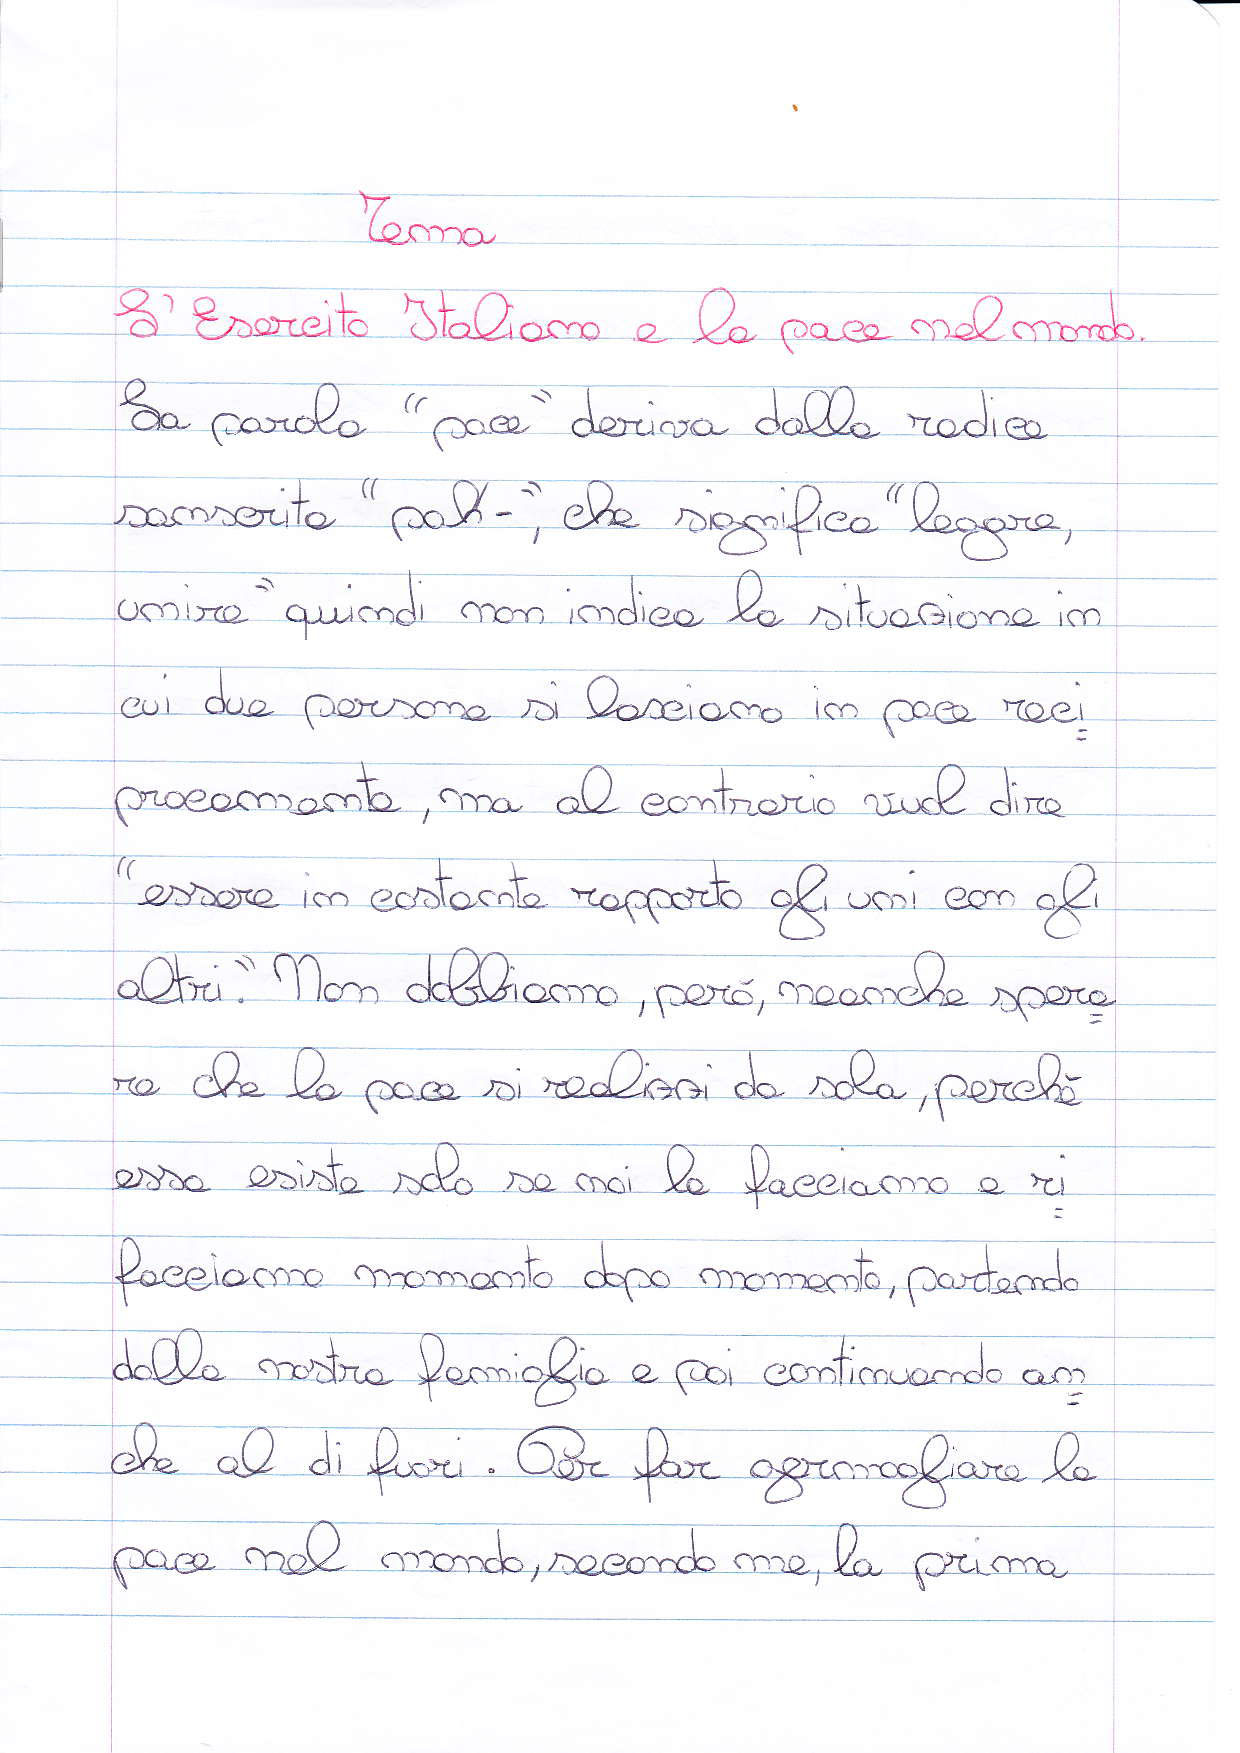 Tema
L'Esercito Italiano e la pace nel mondo.
La parola "pace" deriva dalla radice
sanscrita "pak-", che significa "legare,
unire" quindi non indica la situazione in
cui due persone si lasciano in pace reci=
procamente, ma al contrario vuol dire
"essere in costante rapporto gli uni con gli
altri". Non dobbiamo, peró, neanche spera=
re che la pace si realizzi da sola, perchè
essa esiste solo se noi la facciamo e ri=
facciamo momento dopo momento, partendo
dalla nostra famiglia e poi continuando an=
che al di fuori. Per far germogliare la
pace nel mondo, secondo me, la prima